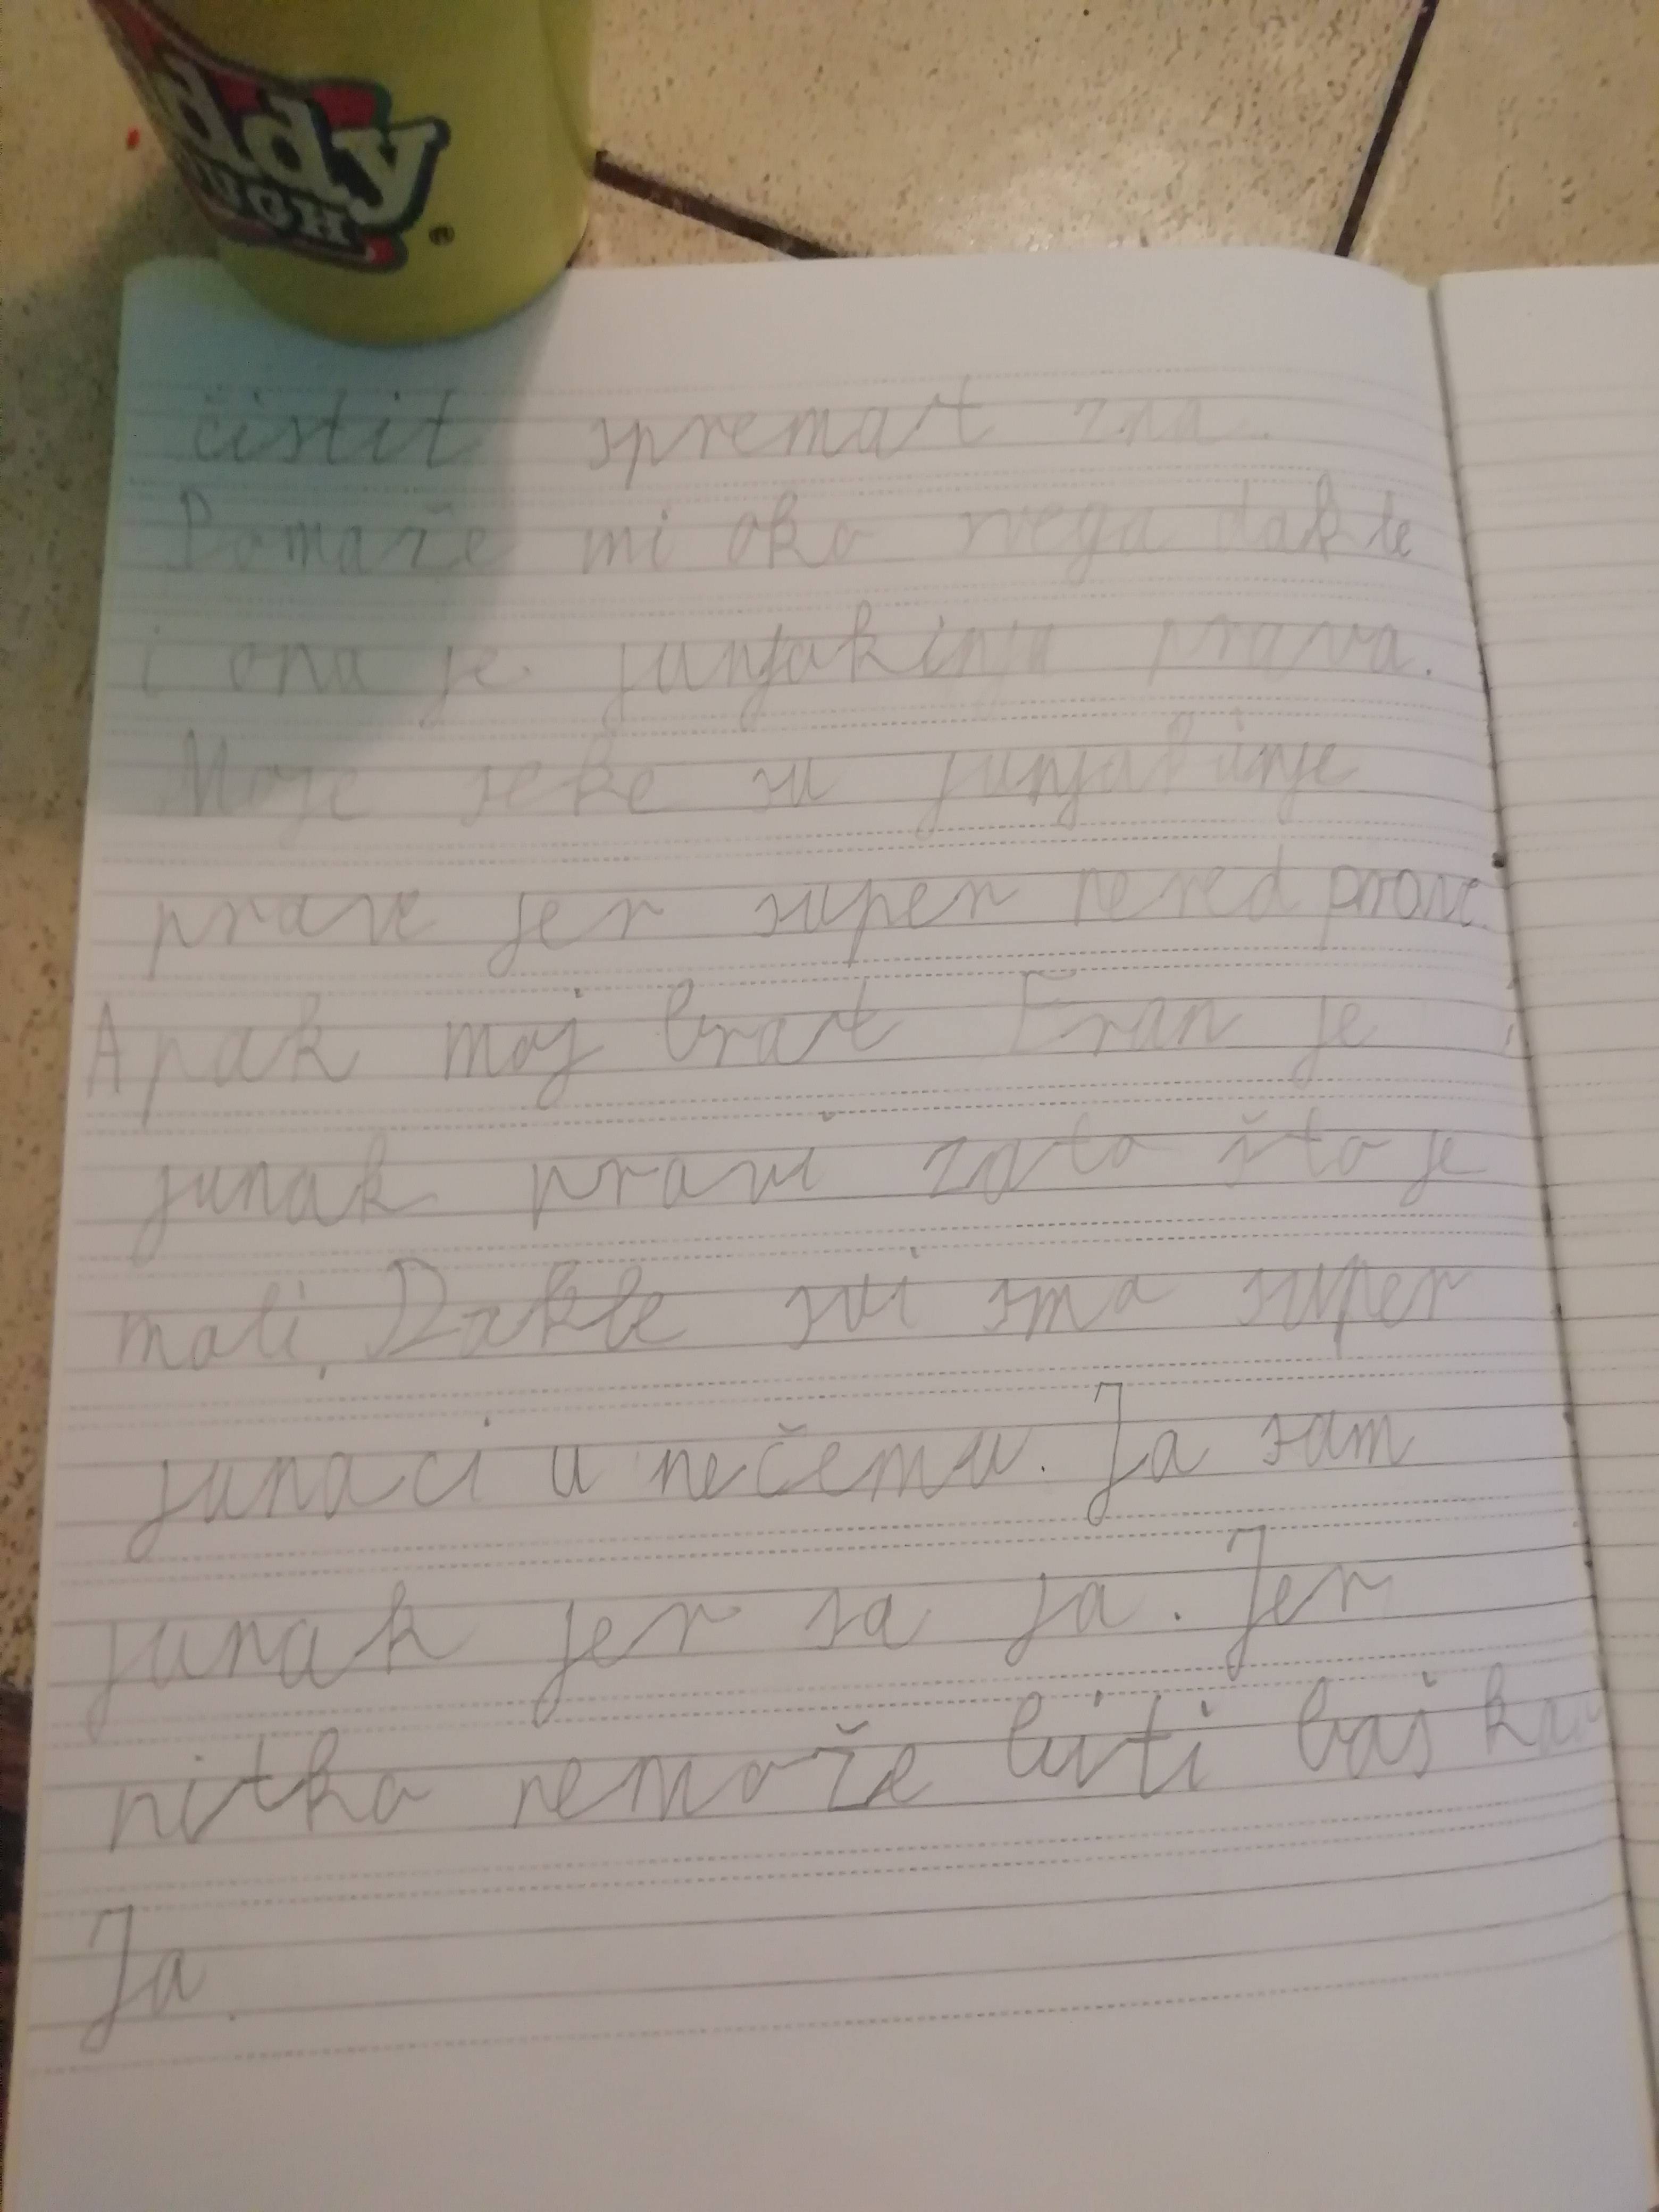 ddy
OUGH ®
čistit spremat zna.
Pomaže mi oko svega dakle
i ona je junjakinja prava.
Moje seke su junjakinje
prave jer super nered prave.
A pak moj brat Fran je
junak pravi zato što je
mali. Dakle svi smo super
junaci u nečemu. Ja sam
junak jer sa ja. Jer
nitko nemože biti baš kao
Ja.